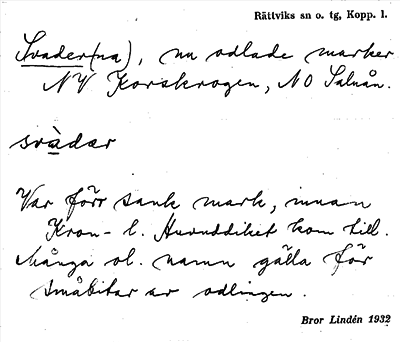 Rättviks sn o. tg, Kopp. l.
Svader(na), nu odlade marker
NV Korskrogen, NO Salnån.
svàdar
Var förr sank mark, innan
Kron- l. Huvuddiket kom till.
Många ol. namn gälla för
småbitar av odlingen.
Bror Lindén 1932